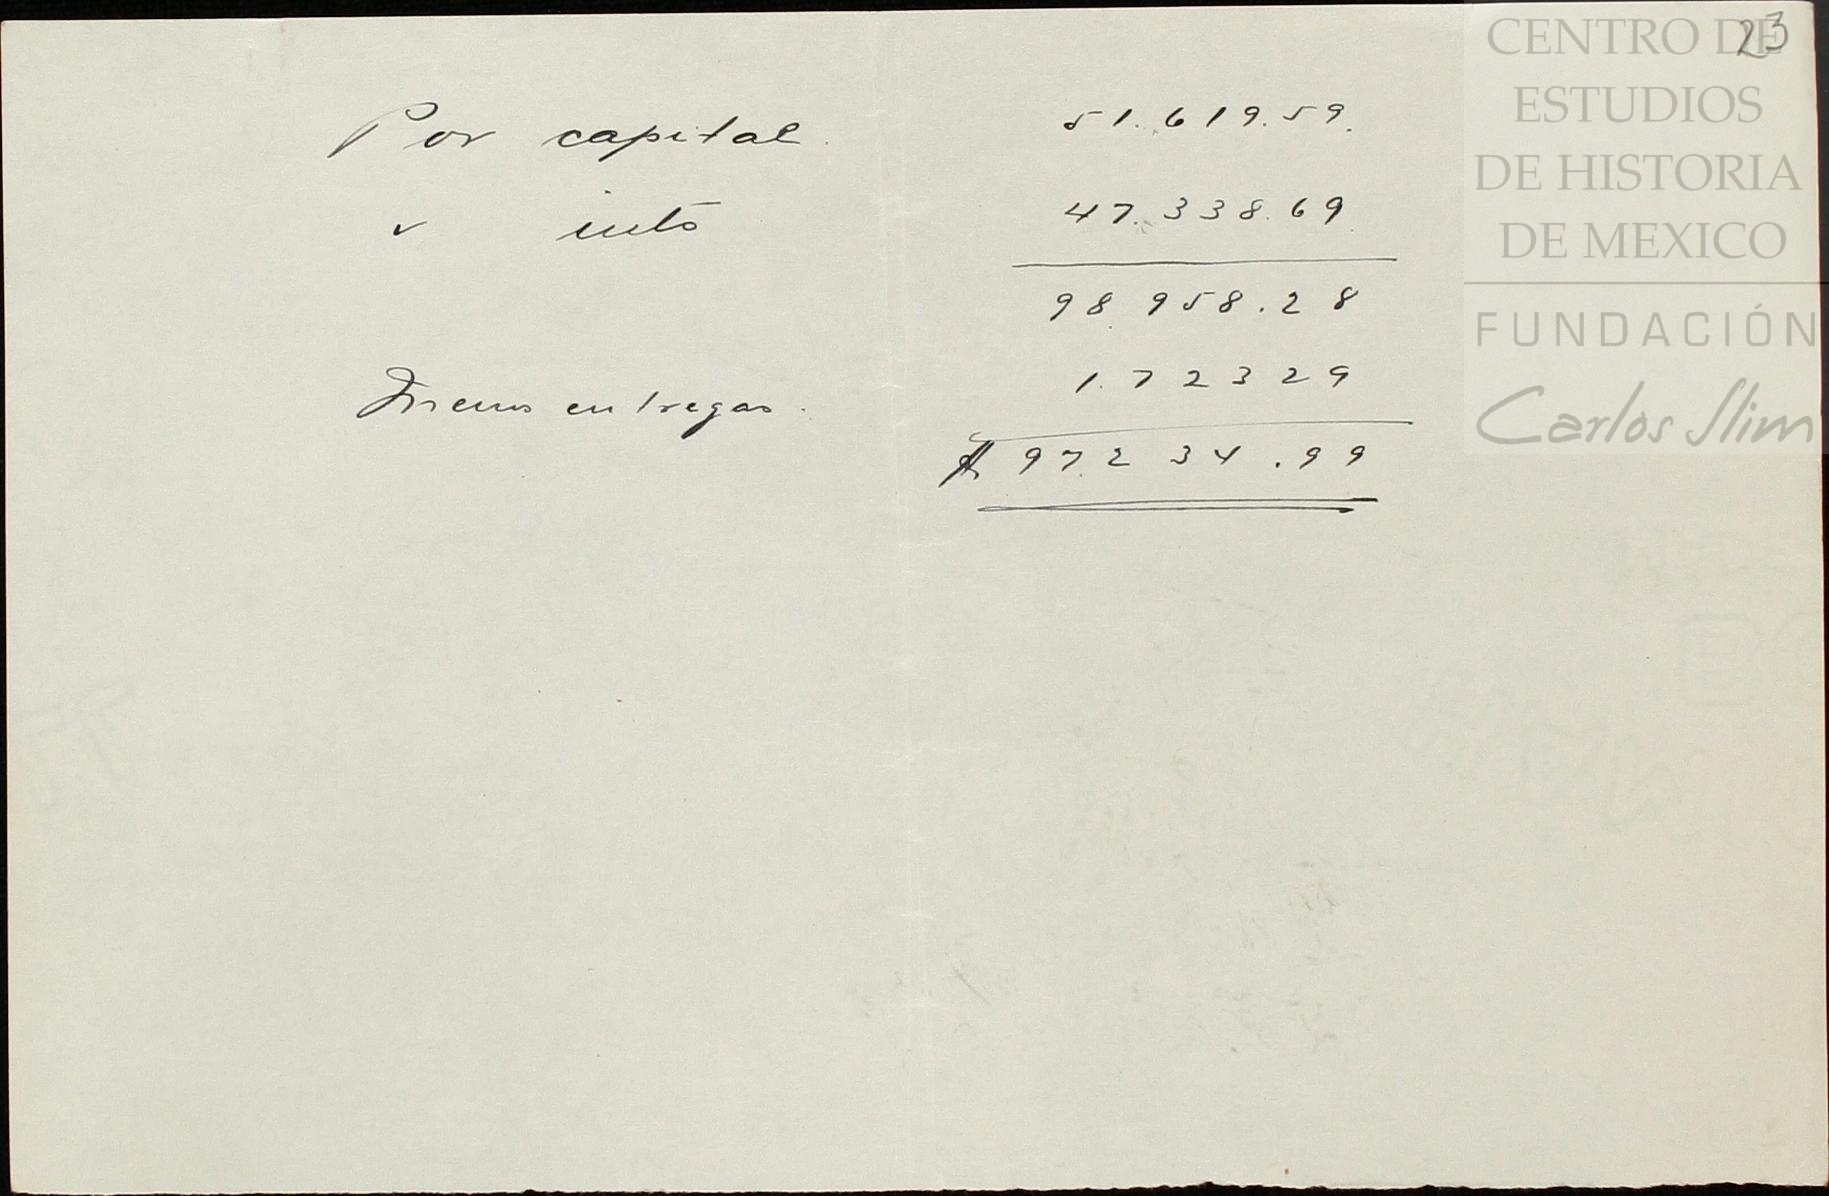 23
Por capital. 51.619.59.
" intś 47.338.69
98 958.28
Menos entregas. 1.72329
$ 97234.99
CENTRO DE
ESTUDIOS
DE HISTORIA
DE MEXICO
FUNDACIÓN
Carlos Slim